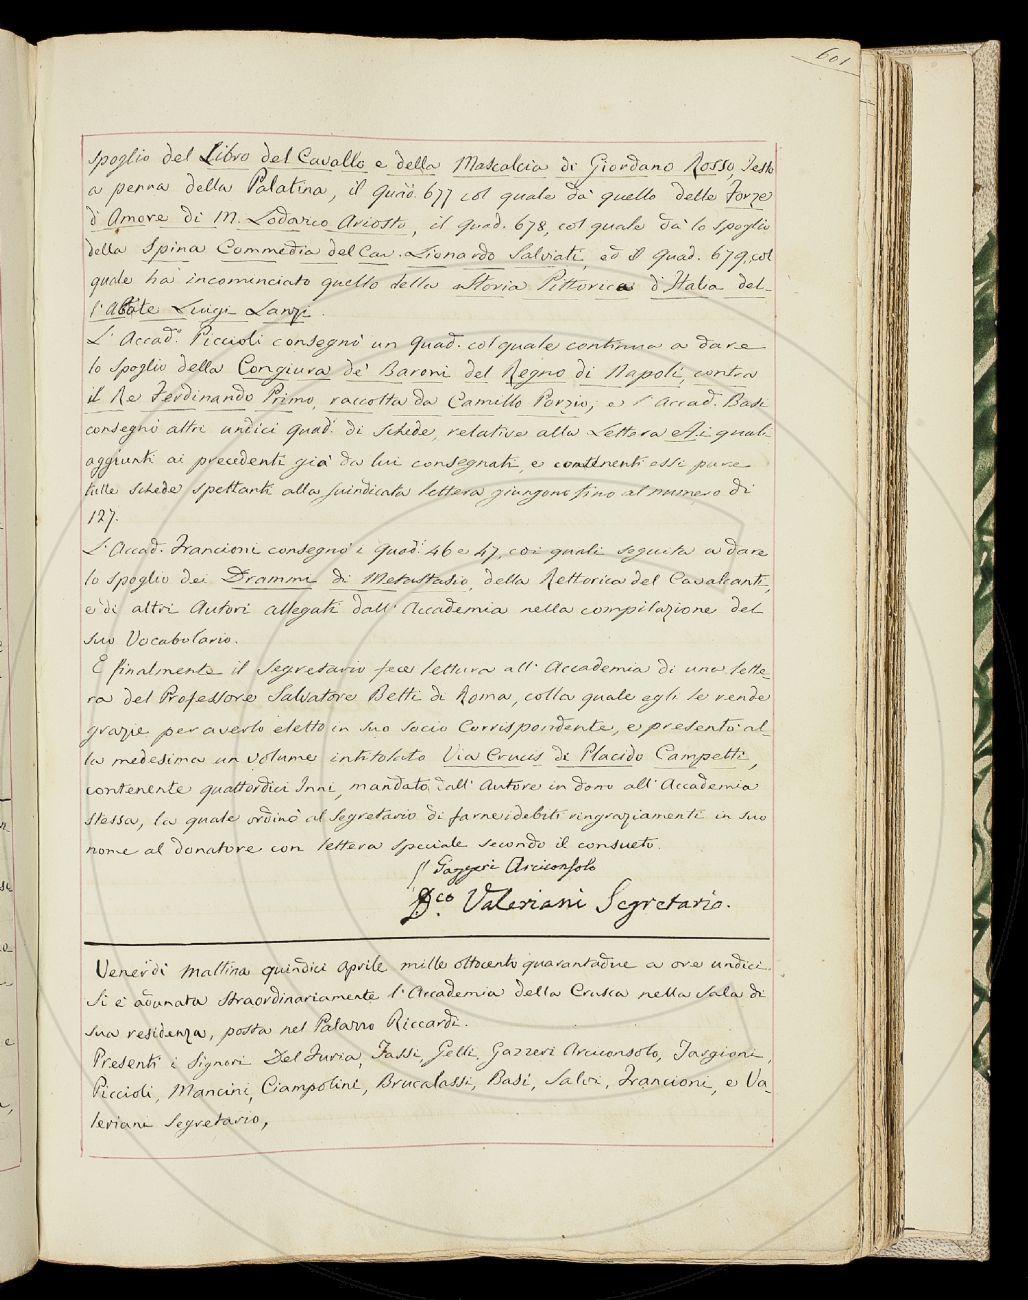 601
spoglio del Libro del Cavallo e della Mascalcia di Giordano Rosso, Testo
a penna della Palatina, il quad.º 677 col quale dà quello delle Forze
d'Amore di M. Lodovico Ariosto, il quad. 678, col quale dà lo spoglio
della Spina Commedia del Cav. Lionardo Salviati, ed il quad. 679, col
quale ha incominciato quello della Storia Pittorica d'Italia del-
l'Abate Luigi Lanzi.
L'Accad.º Piccioli consegnò un quad. col quale continua a dare
lo spoglio della Congiura de' Baroni del Regno di Napoli, contra
il Re Ferdinando Primo, raccolta da Camillo Porzio; e l'Accad. Basi
consegnò altri undici quad. di schede, relative alla Lettera A, i quali
aggiunti ai precedenti già da lui consegnati, e contenenti essi pure
tutte schede spettanti alla suindicata lettera giungono fino al numero di
127.
L'Accad. Francioni consegnò i quad.ⁱ 46 e 47, coi quali seguita a dare
lo spoglio dei Drammi di Metastasio, della Rettorica del Cavalcanti,
e di altri Autori allegati dall'Accademia nella compilazione del
suo Vocabolario.
E finalmente il Segretario fece lettura all'Accademia di una lette-
ra del Professore Salvatore Betti di Roma, colla quale egli le rende
grazie per averlo eletto in suo socio Corrispondente, e presentò al-
la medesima un volume intitolato Via Crucis di Placido Campetti,
contenente quattordici Inni, mandato dall'Autore in dono all'Accademia
stessa, la quale ordinò al Segretario di farne i debiti ringraziamenti in suo
nome al donatore con lettera speciale secondo il consueto.
Gazzeri Arciconsolo
D.co Valeriani Segretario.
Venerdì mattina quindici Aprile mille ottocento quarantadue a ore undici
si è adunata straordinariamente l'Accademia della Crusca nella sala di
sua residenza, posta nel Palazzo Riccardi.
Presenti i Signori Del Furia, Fassi, Gelli, Gazzeri Arciconsolo, Targioni,
Piccioli, Mancini, Ciampolini, Brucalassi, Basi, Salvi, Francioni, e Va
leriani Segretario,